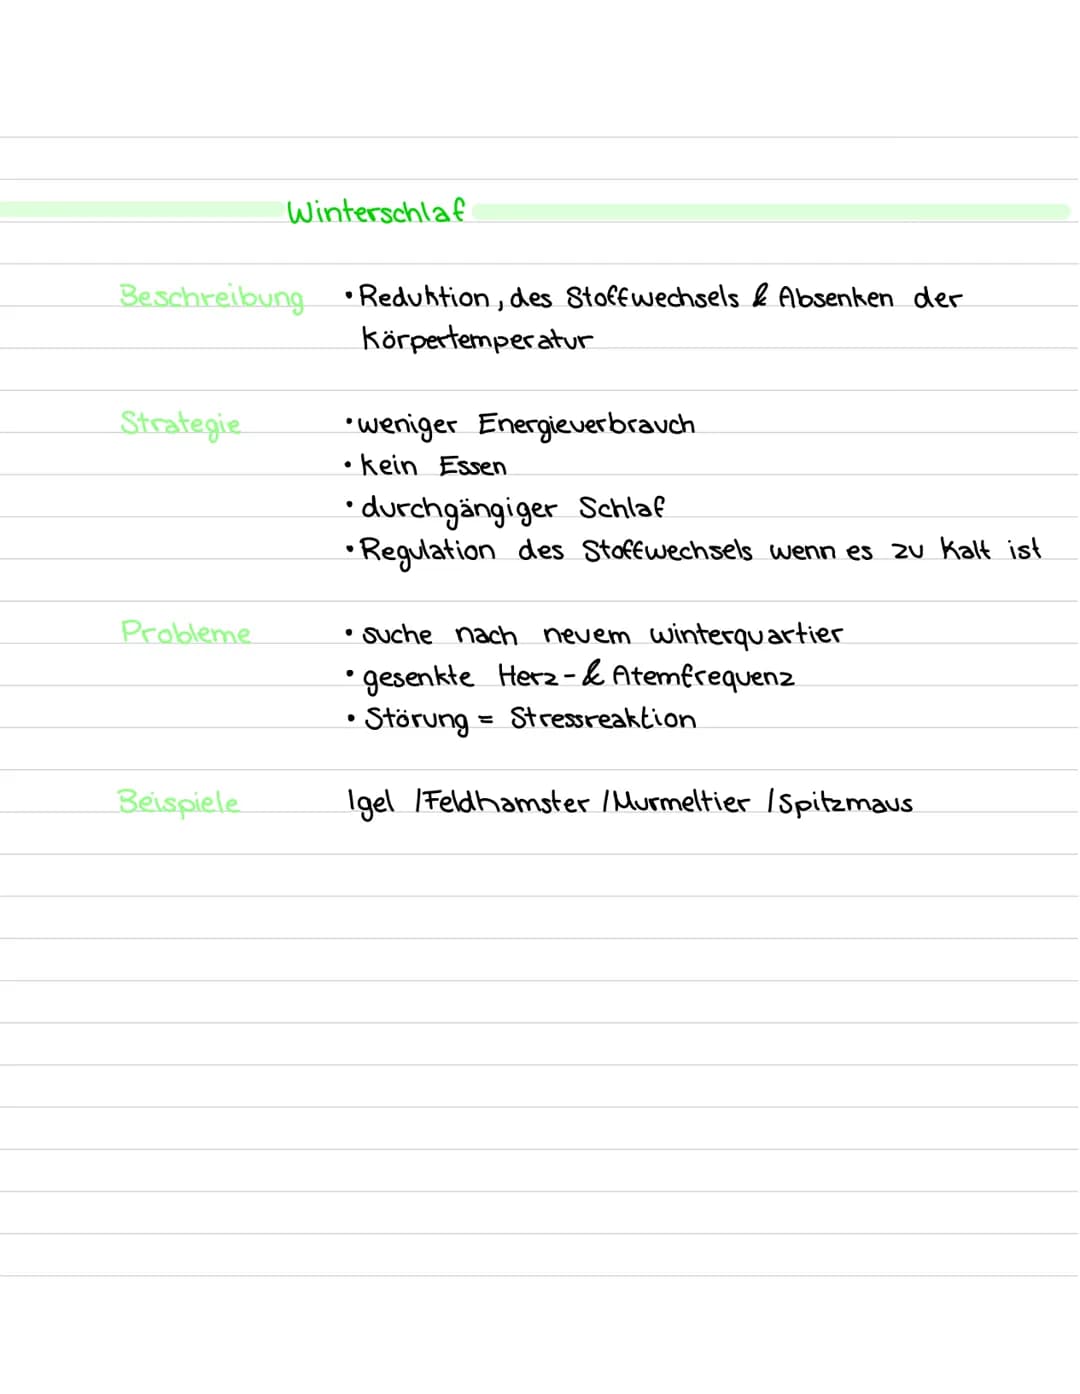 Winterschlaf
Beschreibung • Reduktion, des Stoffwechsels & Absenken der
Körpertemperatur
Strategie • weniger Energieverbrauch
• kein Essen
• durchgängiger Schlaf
• Regulation des Stoffwechsels wenn es zu kalt ist
Probleme • suche nach neuem winterquartier
• gesenkte Herz- & Atemfrequenz
• Störung = Stressreaktion
Beispiele Igel / Feldhamster / Murmeltier / Spitzmaus